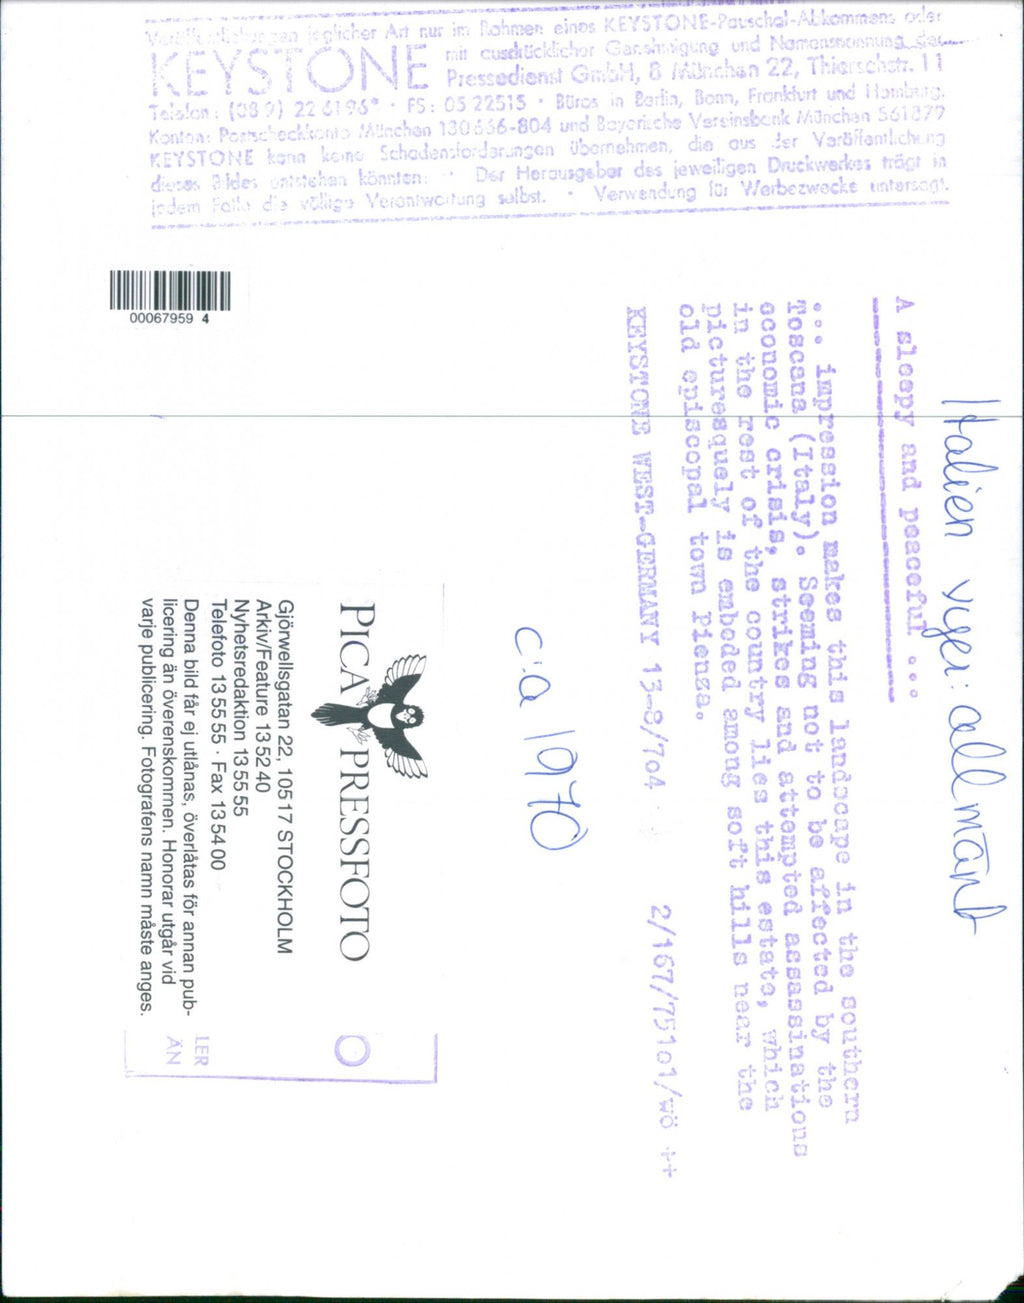 Veröffentlichungen jeglicher Art nur im Rahmen eines KEYSTONE-Pauschal-Abkommens oder
mit ausdrücklicher Genehmigung und Namensnennung
KEYSTONE Pressedienst GmbH, 8 München 22, Thierschstr. 11
Telefon: (08 9) 22 61 96* · FS: 05 22515 · Büros in Berlin, Bonn, Frankfurt und Hamburg.
Konten: Postscheckkonto München 130 636-804 und Bayerische Vereinsbank München 561 879
KEYSTONE kann keine Schadensforderungen übernehmen, die aus der Veröffentlichung
dieses Bildes entstehen könnten: · Der Herausgeber des jeweiligen Druckwerkes trägt in
jedem Falle die völlige Verantwortung selbst. · Verwendung für Werbezwecke untersagt.
00067959 4
Italien vyer: allmänt
A sleepy and peaceful ...
... impression makes this landscape in the southern
Toscana (Italy). Seeming not to be affected by the
economic crisis, strikes and attempted assassinations
in the rest of the country lies this estate, which
picturesquely is embeded among soft hills near the
old episcopal town Pienza.
KEYSTONE WEST-GERMANY 13-8/7o4 2/167/751o1/wö ++
c:a 1970
PICA PRESSFOTO
Gjörwellsgatan 22, 105 17 STOCKHOLM
Arkiv/Feature 13 52 40
Nyhetsredaktion 13 55 55
Telefoto 13 55 55 · Fax 13 54 00
Denna bild får ej utlånas, överlåtas för annan pub-
licering än överenskommen. Honorar utgår vid
varje publicering. Fotografens namn måste anges.
O
LER
ÄN